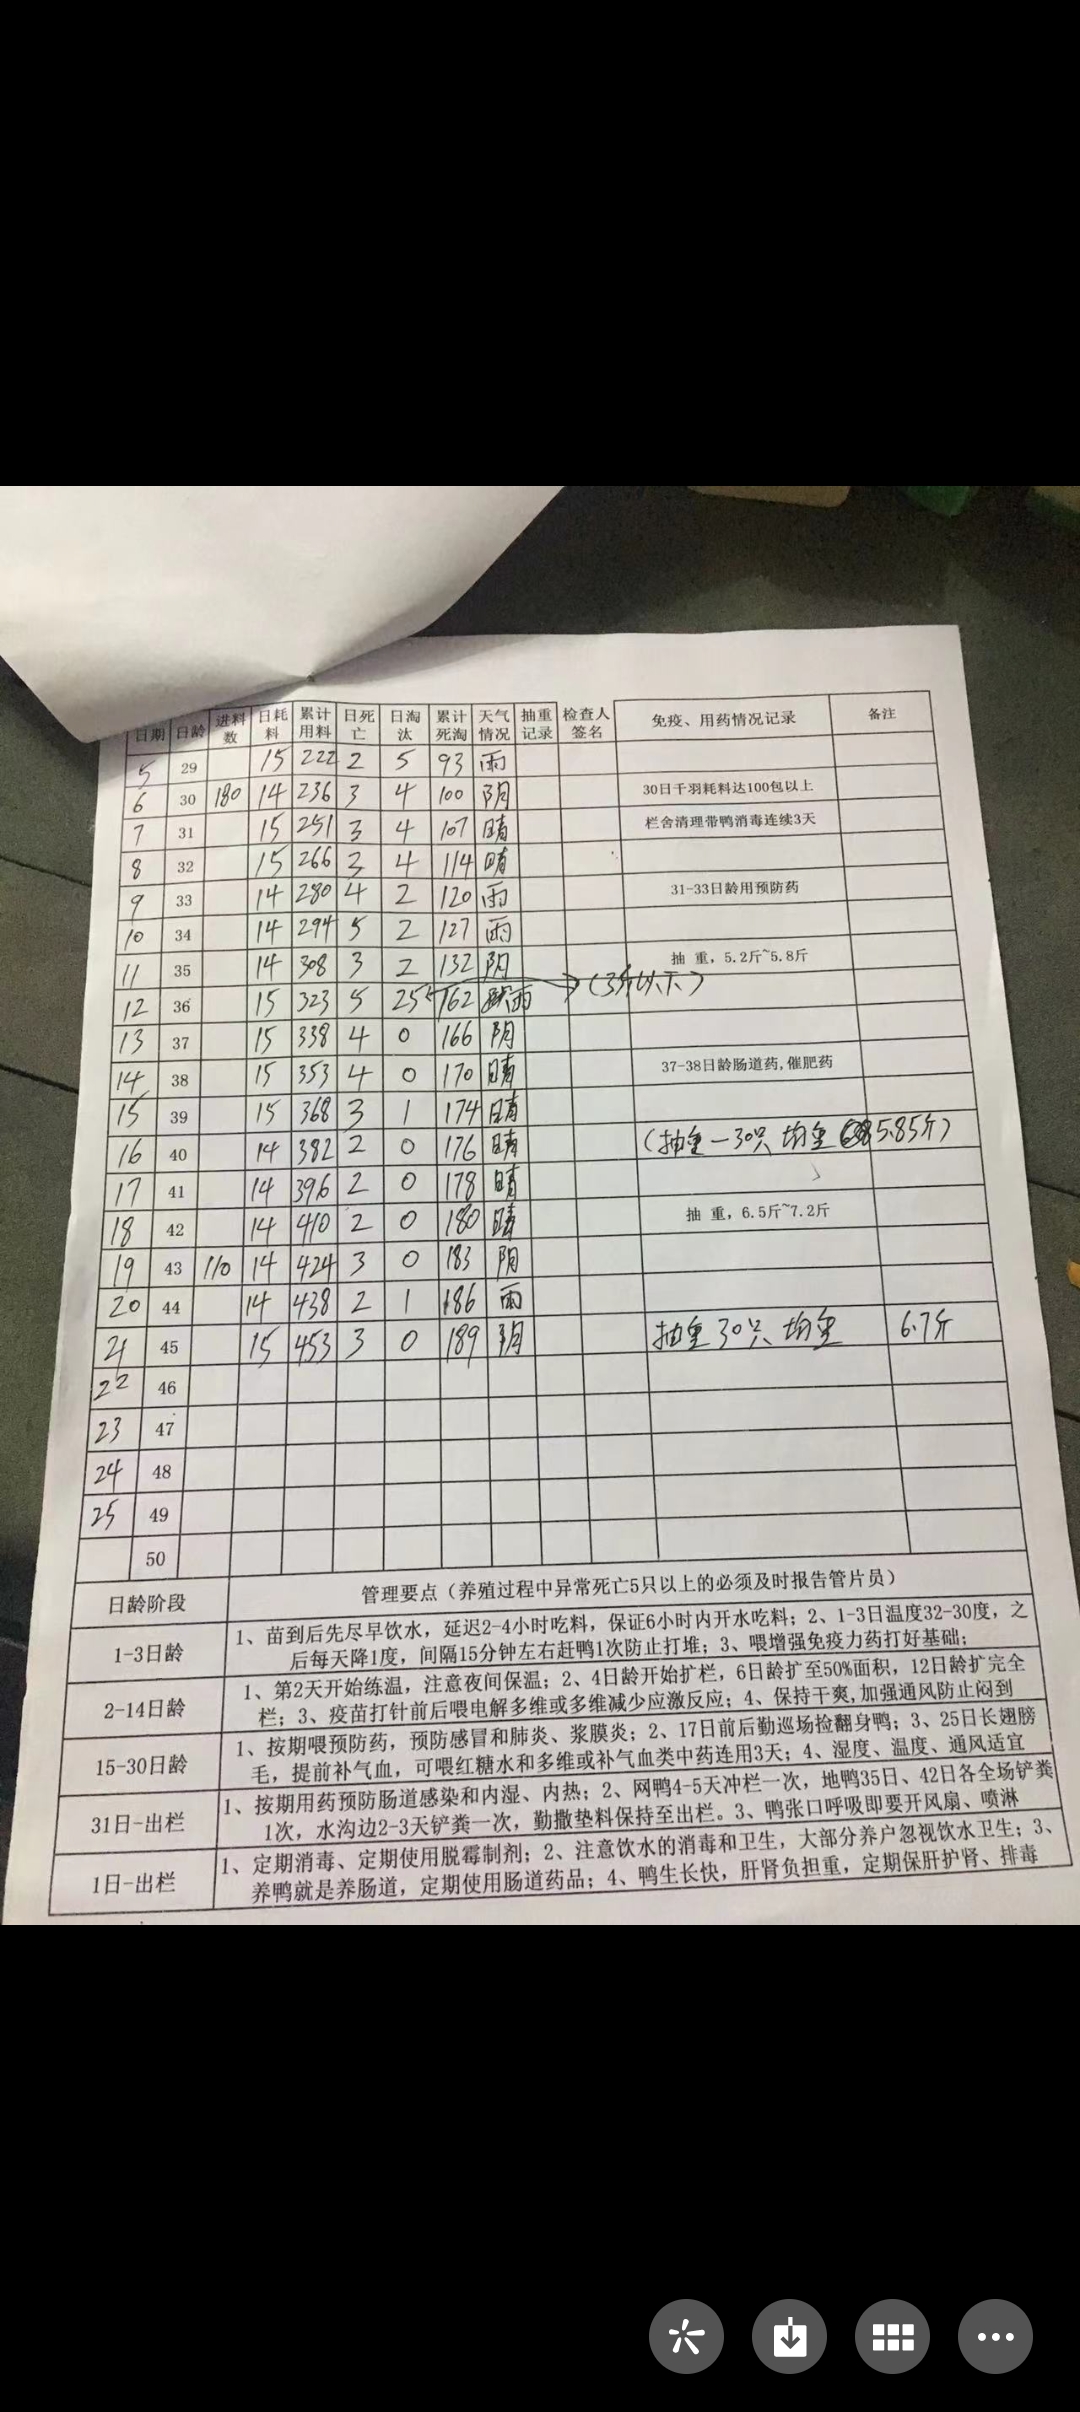 日期 日龄 进料数 日耗料 累计用料 日死亡 日淘汰 累计死淘 天气情况 抽重记录 检查人签名 免疫、用药情况记录 备注
5 29 15 222 2 5 93 雨
6 30 180 14 236 3 4 100 阴 30日千羽耗料达100包以上
7 31 15 251 3 4 107 晴 栏舍清理带鸭消毒连续3天
8 32 15 266 3 4 114 晴
9 33 14 280 4 2 120 雨 31-33日龄用预防药
10 34 14 294 5 2 127 雨
11 35 14 308 3 2 132 阴 抽 重，5.2斤~5.8斤
12 36 15 323 5 25 162 雨 (3斤以下)
13 37 15 338 4 0 166 阴
14 38 15 353 4 0 170 晴 37-38日龄肠道药,催肥药
15 39 15 368 3 1 174 晴
16 40 14 382 2 0 176 晴 (抽重一30只 均重 5.85斤)
17 41 14 396 2 0 178 晴
18 42 14 410 2 0 180 晴 抽 重，6.5斤~7.2斤
19 43 110 14 424 3 0 183 阴
20 44 14 438 2 1 186 雨
21 45 15 453 3 0 189 阴 抽重30只 均重 6.7斤
22 46
23 47
24 48
25 49
50
日龄阶段 管理要点（养殖过程中异常死亡5只以上的必须及时报告管片员）
1-3日龄 1、苗到后先尽早饮水，延迟2-4小时吃料，保证6小时内开水吃料；2、1-3日温度32-30度，之
后每天降1度，间隔15分钟左右赶鸭1次防止打堆；3、喂增强免疫力药打好基础；
2-14日龄 1、第2天开始练温，注意夜间保温；2、4日龄开始扩栏，6日龄扩至50%面积，12日龄扩完全
栏；3、疫苗打针前后喂电解多维或多维减少应激反应；4、保持干爽,加强通风防止闷到
15-30日龄 1、按期喂预防药，预防感冒和肺炎、浆膜炎；2、17日前后勤巡场捡翻身鸭；3、25日长翅膀
毛，提前补气血，可喂红糖水和多维或补气血类中药连用3天；4、湿度、温度、通风适宜
31日-出栏 1、按期用药预防肠道感染和内湿、内热；2、网鸭4-5天冲栏一次，地鸭35日、42日各全场铲粪
1次，水沟边2-3天铲粪一次，勤撒垫料保持至出栏。3、鸭张口呼吸即要开风扇、喷淋
1日-出栏 1、定期消毒、定期使用脱霉制剂；2、注意饮水的消毒和卫生，大部分养户忽视饮水卫生；3、
养鸭就是养肠道，定期使用肠道药品；4、鸭生长快，肝肾负担重，定期保肝护肾、排毒